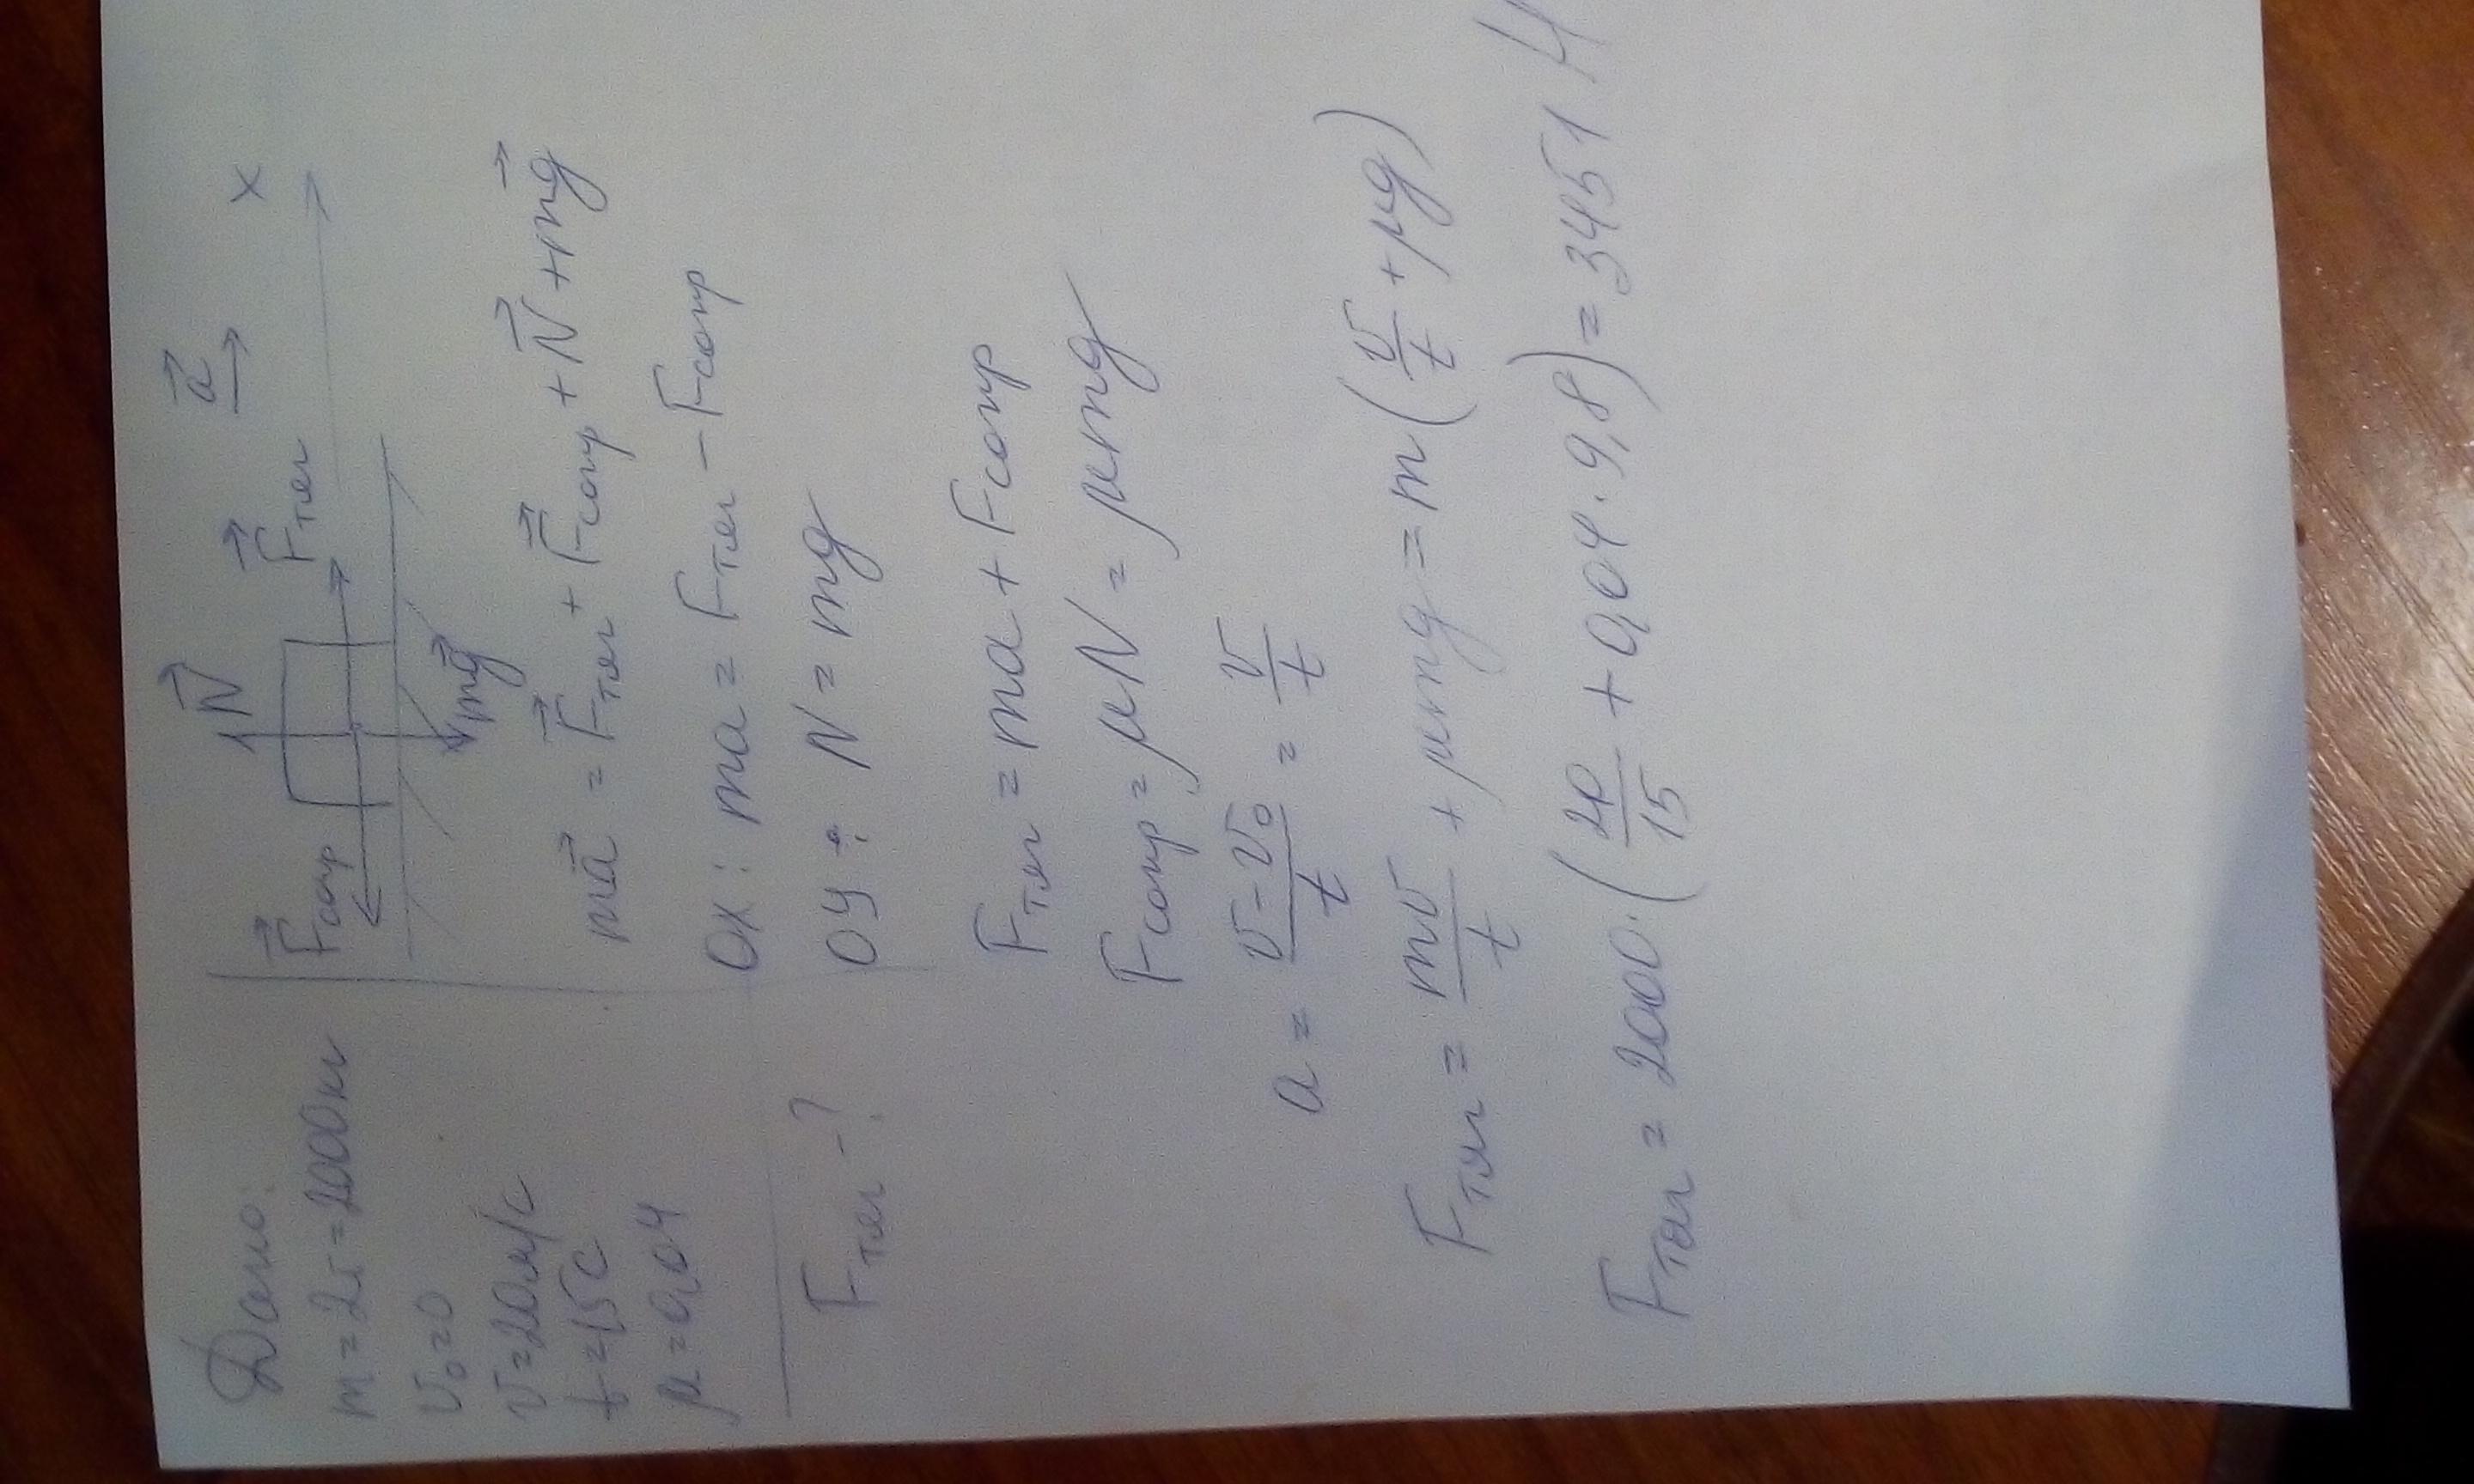 Дано:
m = 2т = 2000кг
υ₀ = 0
υ = 20м/с
t = 15с
μ = 0,04
Fтяг - ?
N⃗
a⃗
x
F⃗сопр
F⃗тяг
mg⃗
ma⃗ = F⃗тяг + F⃗сопр + N⃗ + mg⃗
OX: ma = Fтяг - Fсопр
OY: N = mg
Fтяг = ma + Fсопр
Fсопр = μN = μmg
a = (υ - υ₀)/t = υ/t
Fтяг = mυ/t + μmg = m(υ/t + μg)
Fтяг = 2000·(20/15 + 0,04·9,8) = 3451 Н